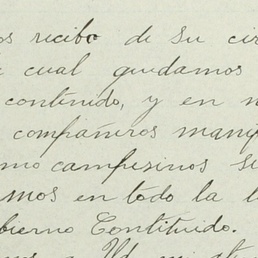 os recibo de su cir
cual quedamos
contenido, y en n
compañeros mani
mo campesinos s
mos en todo la l
bierno Contituido.